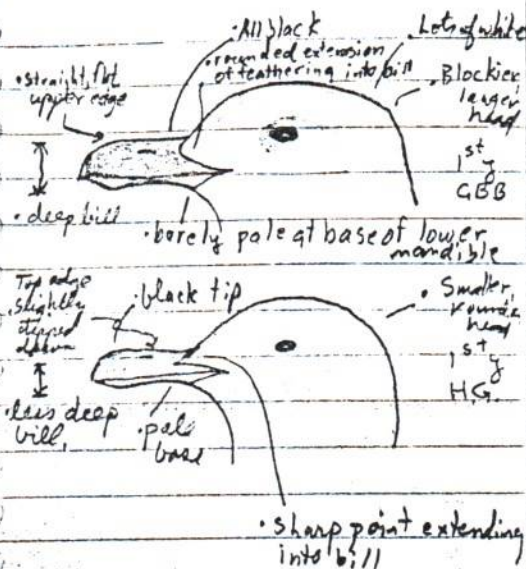 • All black
• Lots of white
• rounded extension
of feathering into bill
• straight, flat
upper edge
• Blockier,
larger
head
1st y
GBB
• deep bill
• barely pale at base of lower
mandible
Top edge
slightly
dipped
down
• black tip
• Smaller,
rounder
head
1st y
H.G.
• less deep
bill,
• pale
base
• sharp point extending
into bill